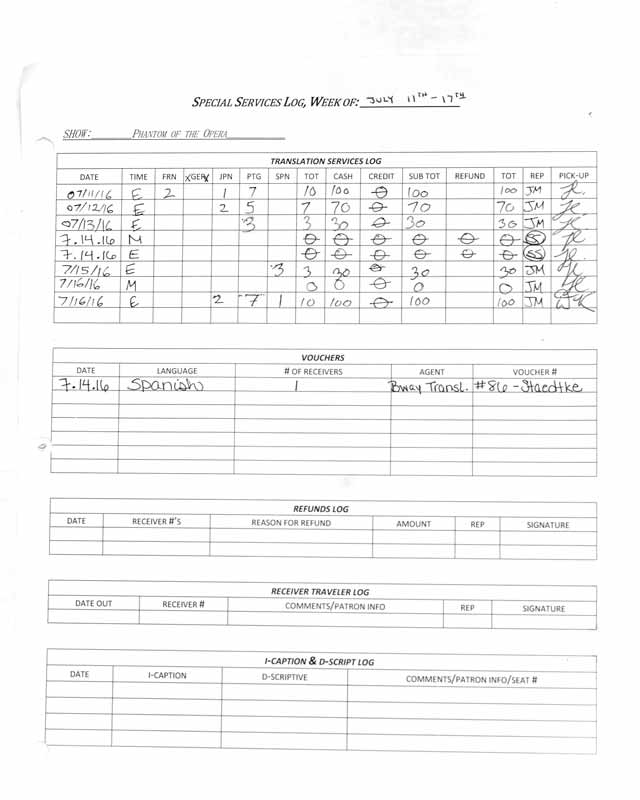 SPECIAL SERVICES LOG, WEEK OF: JULY 11TH - 17TH
SHOW: PHANTOM OF THE OPERA
TRANSLATION SERVICES LOG
DATE TIME FRN GER JPN PTG SPN TOT CASH CREDIT SUB TOT REFUND TOT REP PICK-UP
07/11/16 E 2 1 7 10 100 0 100 100 JM
07/12/16 E 2 5 7 70 0 70 70 JM
07/13/16 E 3 3 30 0 30 30 JM
7.14.16 M 0 0 0 0 0 0 SS
7.14.16 E 0 0 0 0 0 0 SS
7/15/16 E 3 3 30 0 30 30 JM
7/16/16 M 0 0 0 0 0 JM
7/16/16 E 2 7 1 10 100 0 100 100 JM
VOUCHERS
DATE LANGUAGE # OF RECEIVERS AGENT VOUCHER #
7.14.16 Spanish 1 Bway Transl. #86 - Staedtke
REFUNDS LOG
DATE RECEIVER #'S REASON FOR REFUND AMOUNT REP SIGNATURE
RECEIVER TRAVELER LOG
DATE OUT RECEIVER # COMMENTS/PATRON INFO REP SIGNATURE
I-CAPTION & D-SCRIPT LOG
DATE I-CAPTION D-SCRIPTIVE COMMENTS/PATRON INFO/SEAT #